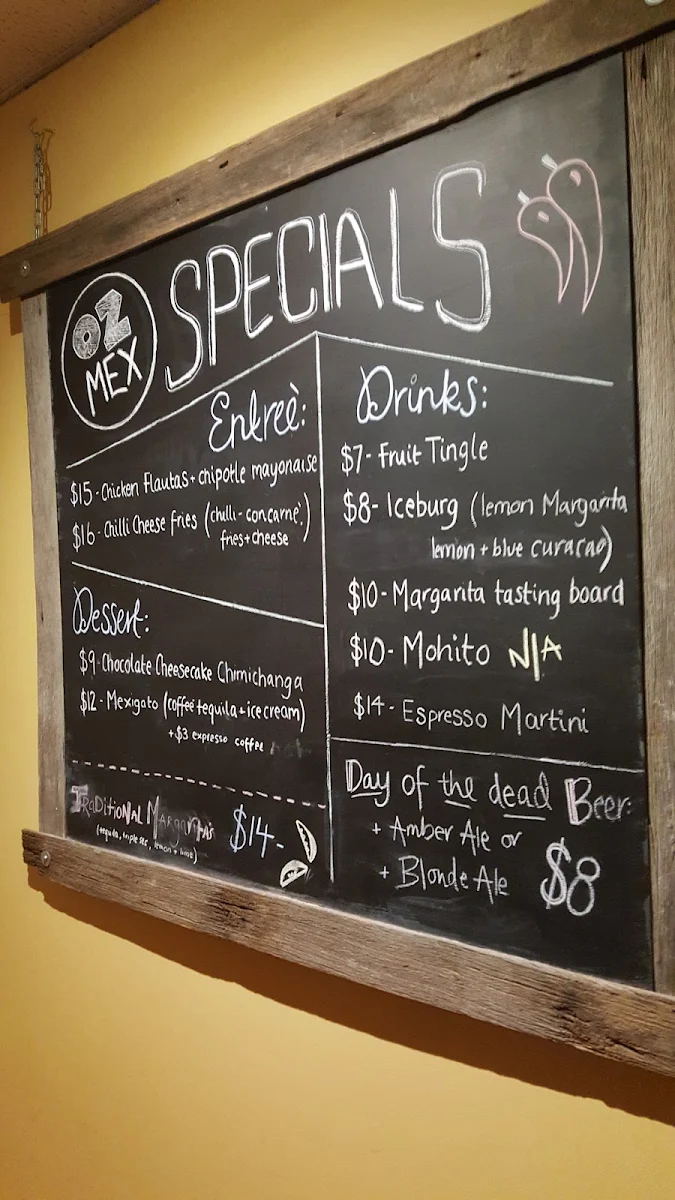 OZ
MEX
SPECIALS
Entreè:
$15 - Chicken Flautas + chipotle mayonaise
$16 - Chilli Cheese fries (chilli-concarne,
fries + cheese)
Dessert:
$9 - Chocolate Cheesecake Chimichanga
$12 - Mexigato (coffee tequila + ice cream)
+$3 expresso coffee
TRaDITIONAL MargaRITas $14-
(tequila, triple sec, lemon + lime)
Drinks:
$7 - Fruit Tingle
$8 - Iceburg (lemon Margarita
lemon + blue curacao)
$10 - Margarita tasting board
$10 - Mohito N/A
$14 - Espresso Martini
Day of the dead Beer:
+ Amber Ale or
+ Blonde Ale $8